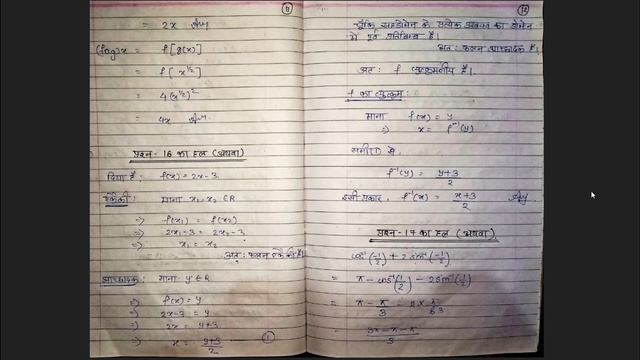 9
= 2x Ans
(fog)x = f[g(x)]
= f[x^1/2]
= 4(x^1/2)^2
= 4x Ans.
प्रश्न-16 का हल (अथवा)
दिया है: f(x) = 2x-3
एकैकी: माना x₁, x₂ ∈ R
⇒ f(x₁) = f(x₂)
⇒ 2x₁-3 = 2x₂-3
⇒ x₁ = x₂
अतः फलन एकैकी है।
आच्छादक: माना y ∈ R
⇒ f(x) = y
⇒ 2x-3 = y
⇒ 2x = y+3
⇒ x = y+3/2 ①
10
चूँकि सहडोमेन के प्रत्येक अवयव का डोमेन
में पूर्व प्रतिबिम्ब है।
अतः फलन आच्छादक है।
अतः f व्युत्क्रमणीय है।
f का व्युत्क्रम:
माना f(x) = y
⇒ x = f⁻¹(y)
समी० ① से,
f⁻¹(y) = y+3/2
इसी प्रकार, f⁻¹(x) = x+3/2 Ans
प्रश्न-17 का हल (अथवा)
cos⁻¹(-1/2) + 2 sin⁻¹(-1/2)
= π - cos⁻¹(1/2) - 2sin⁻¹(1/2)
= π - π/3 - 2×π/6 3
= 3π-π-π/3